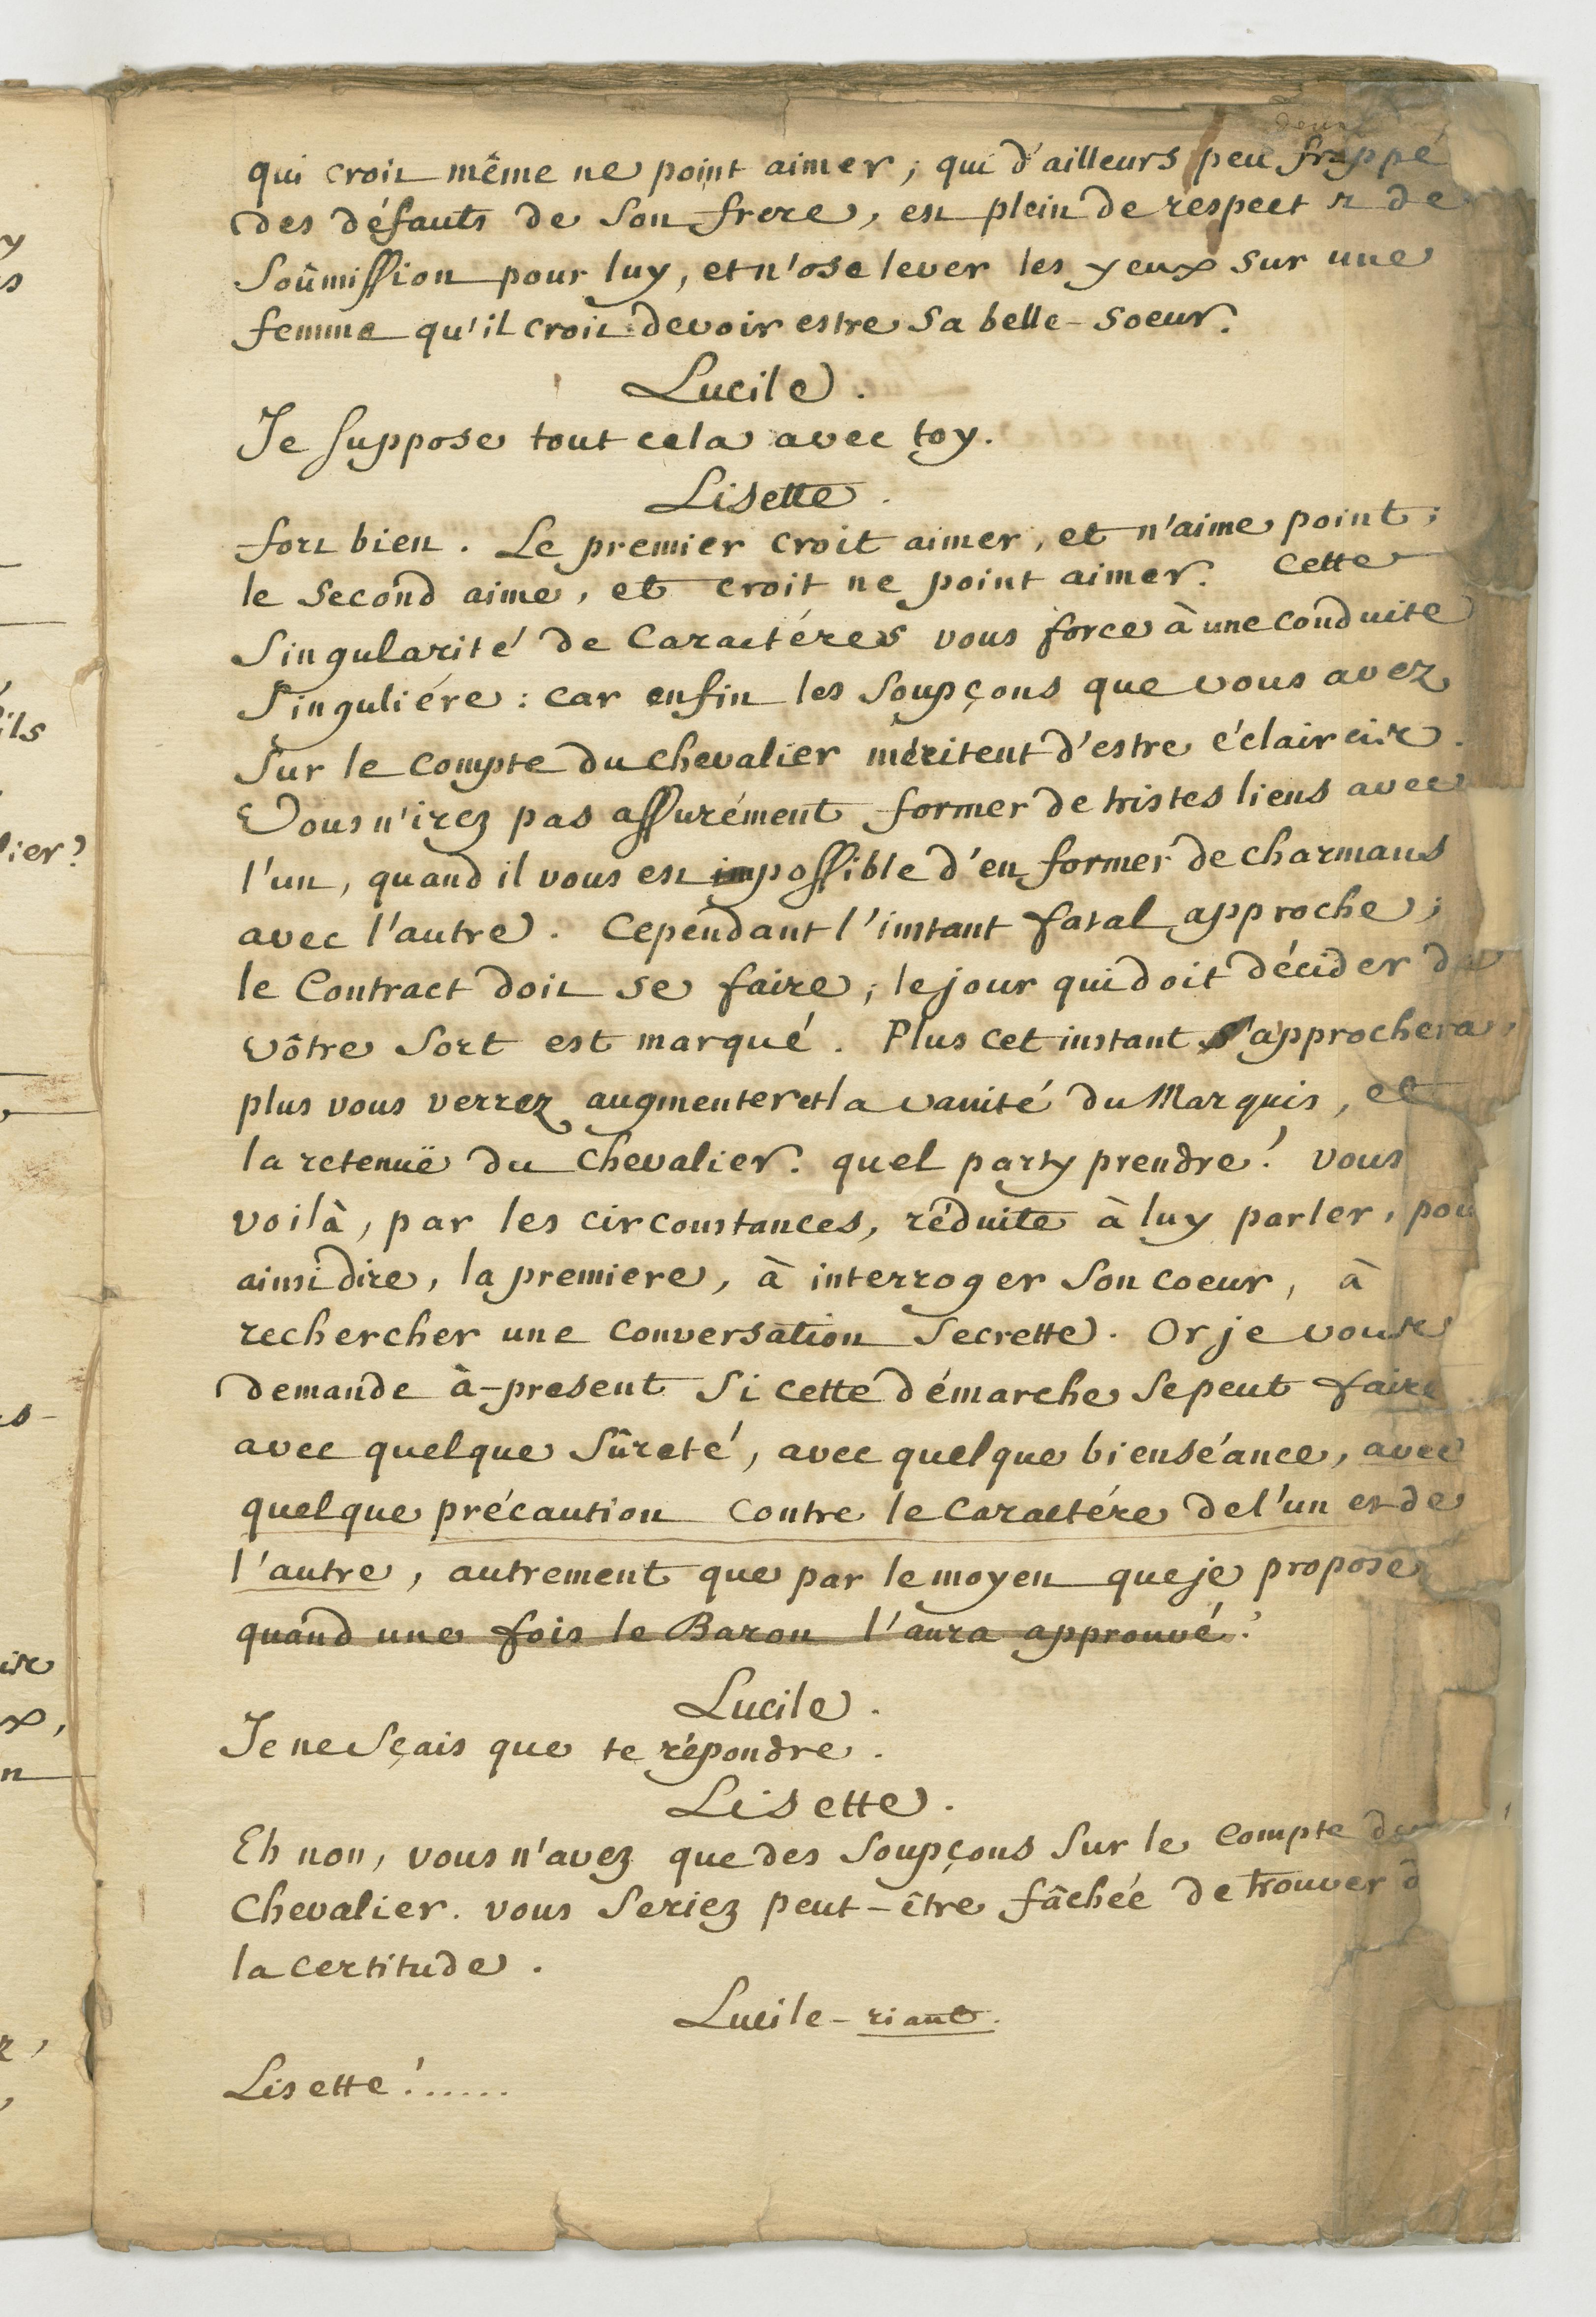 qui croit même ne point aimer; qui d'ailleurs peu frappé
des défauts de son frere, est plein de respect & de
soûmission pour luy, et n'ose lever les yeux sur une
femme qu'il croit devoir estre sa belle-soeur.
Lucile.
Je suppose tout cela avec toy.
Lisette.
fort bien. Le premier croit aimer, et n'aime point;
le second aime, et croit ne point aimer. Cette
singularité de Caractéres vous force à une conduite
singuliére: car enfin les soupçons que vous avez
sur le compte du chevalier méritent d'estre éclaircis.
Vous n'irez pas assurément former de tristes liens avec
l'un, quand il vous est impossible d'en former de charmans
avec l'autre. Cependant l'instant fatal approche;
le Contract doit se faire; le jour qui doit décider de
vôtre sort est marqué. Plus cet instant s'approchera,
plus vous verrez augmenter et la vanité du Marquis, et
la retenuë du Chevalier. quel party prendre? vous
voilà, par les circonstances, réduite à luy parler, pou
ainsi dire, la premiere, à interroger son coeur, à
rechercher une conversation secrette. Or je vous
demande à-present si cette démarche se peut faire
avec quelque sûreté, avec quelque bienséance, avec
quelque précaution contre le Caractére de l'un et de
l'autre, autrement que par le moyen que je propose
quand une fois le Baron l'aura approuvé?
Lucile.
Je ne sçais que te répondre.
Lisette.
Eh non, vous n'avez que des soupçons sur le compte du
Chevalier. vous seriez peut-être fâchée de trouver d
la certitude.
Lucile-riant.
Lisette!......